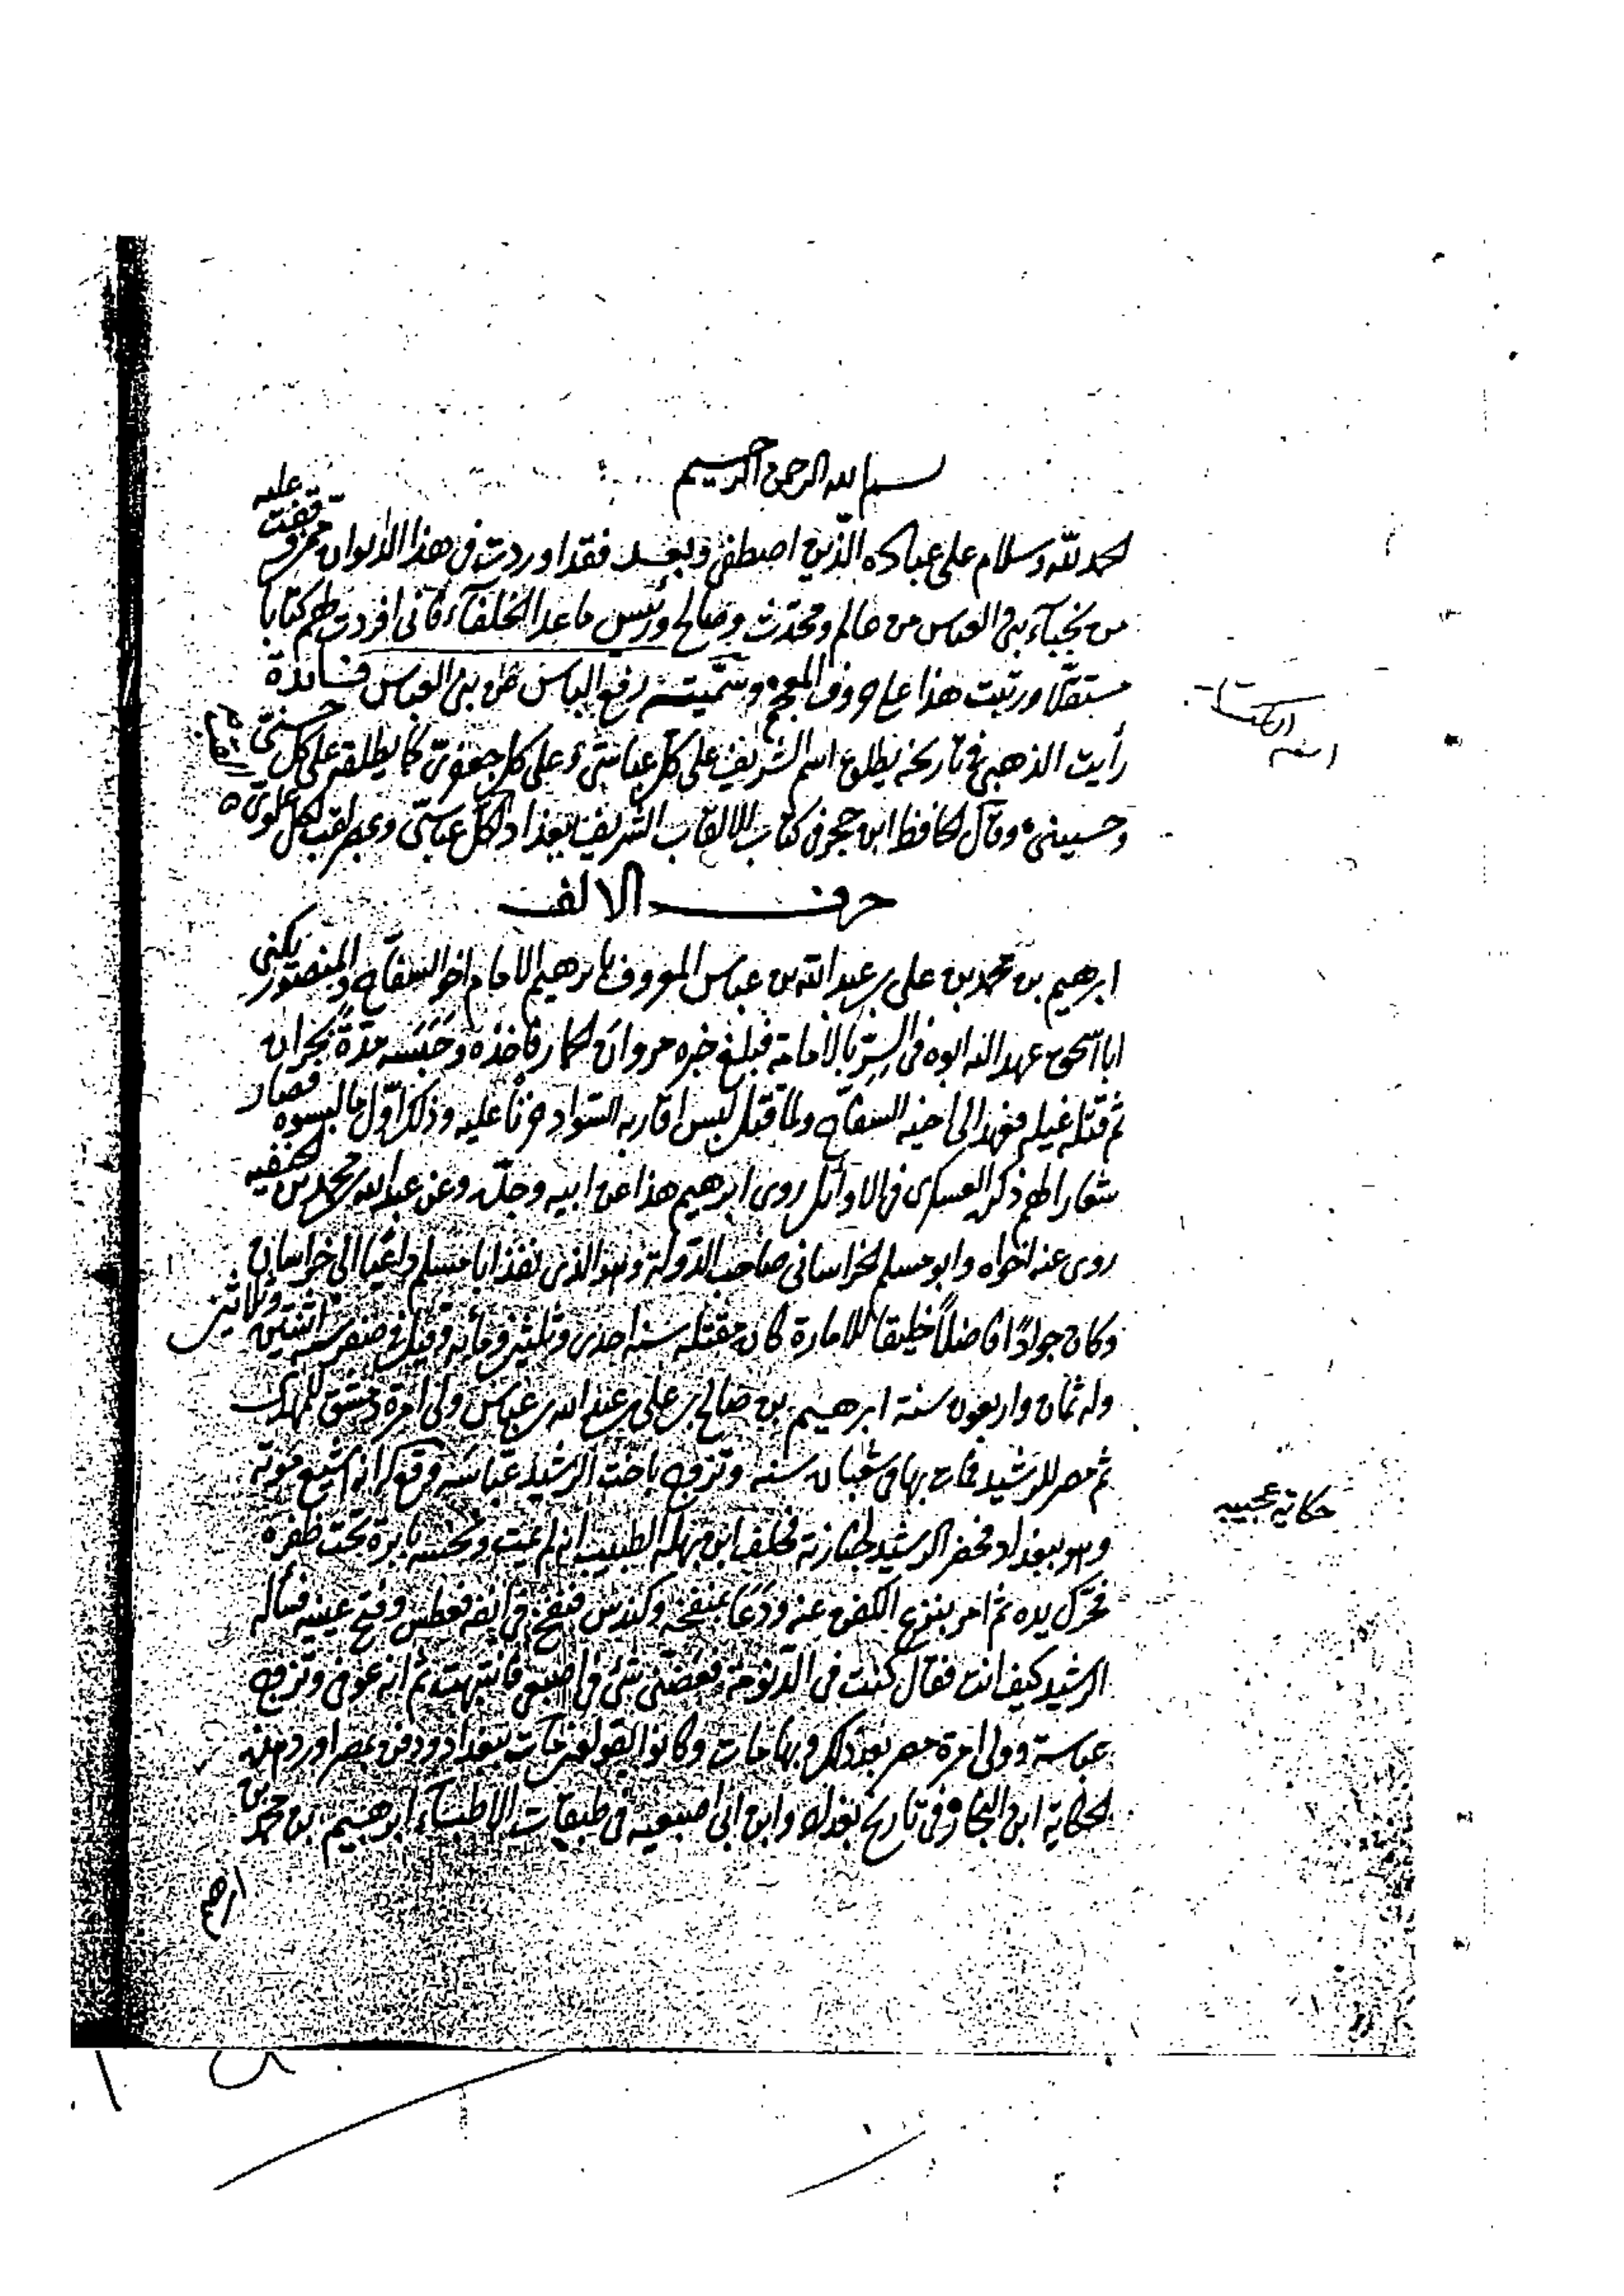 بسم الله الرحمن الرحيم
الحمد لله وسلام على عباده الذين اصطفى وبعد فقد اوردت في هذا الديوان من وقفت عليه
من نجباء بني العباس من عالم ومحدث وصالح ورئيس ما عدا الخلفآء فاني افردت لهم كتابا
مستقلا ورتبت هذا على حروف المعجم وسميته رفع الباس عن بني العباس فائدة
رأيت الذهبي في تاريخه يطلق اسم الشريف على كل عباسي وعلى كل جعفري كما يطلقه على كل حسني
وحسيني وقال الحافظ ابن حجر في كتاب الالقاب الشريف ببغداد لكل عباسي وبمصر لقب لكل علوي
حرف الالف
ابرهيم بن محمد بن علي بن عبد الله بن عباس المعروف بابرهيم الامام اخو السفاح والمنصور يكنى
ابا اسحق عهد اليه ابوه في السر بالامامة فبلغ خبره مروان الحمار فاخذه وحبسه مدة بحران
ثم قتله غيلة فعهد الى اخيه السفاح ولما قتل لبس اقاربه السواد حزنا عليه وذلك اول ما لبسوه فصار
شعارا لهم ذكره العسكري في الاوائل روى ابرهيم هذا عن ابيه وجده وعن عبد الله بن محمد بن الحنفيه
روى عنه اخواه وابو مسلم الخراساني صاحب الدولة وهو الذي نفذ ابا مسلم داعيا الى خراسان
وكان جوادًا فاضلًا خليقا للامارة كان مقتله سنة احدى وثلثين ومأية وقيل في صفر سنة اثنتين وثلاثين
وله ثمان واربعون سنة ابرهيم بن صالح بن علي بن عبد الله بن عباس ولي امرة دمشق للمهدي
ثم مصر للرشيد فمات بها في شعبان سنة وتزوج باخت الرشيد عباسه وقع له انه اشيع موته
وهو ببغداد فحضر الرشيد لجنازته فحلف ابن بهله الطبيب انه لم يمت ونخسه بابرة تحت ظفره
فحرك يده ثم امر بنزع الكفن عنه ودعا بمنفخة وكندس فنفخ في انفه فعطس وفتح عينيه فسأله
الرشيد كيف انت فقال كنت في الذ نومة فعضني شئ في اصبعي فانتبهت ثم انه عوفي وتزوج
عباسة وولي امرة مصر بعد ذلك وبها مات وكانوا يقولون مات ببغداد ودفن بمصر اورد هذه
الحكاية ابن النجار في تاريخ بغداد وابن ابي اصيبعه في طبقات الاطباء ابرهيم بن محمد بن
ابرهيم
حكاية عجيبه